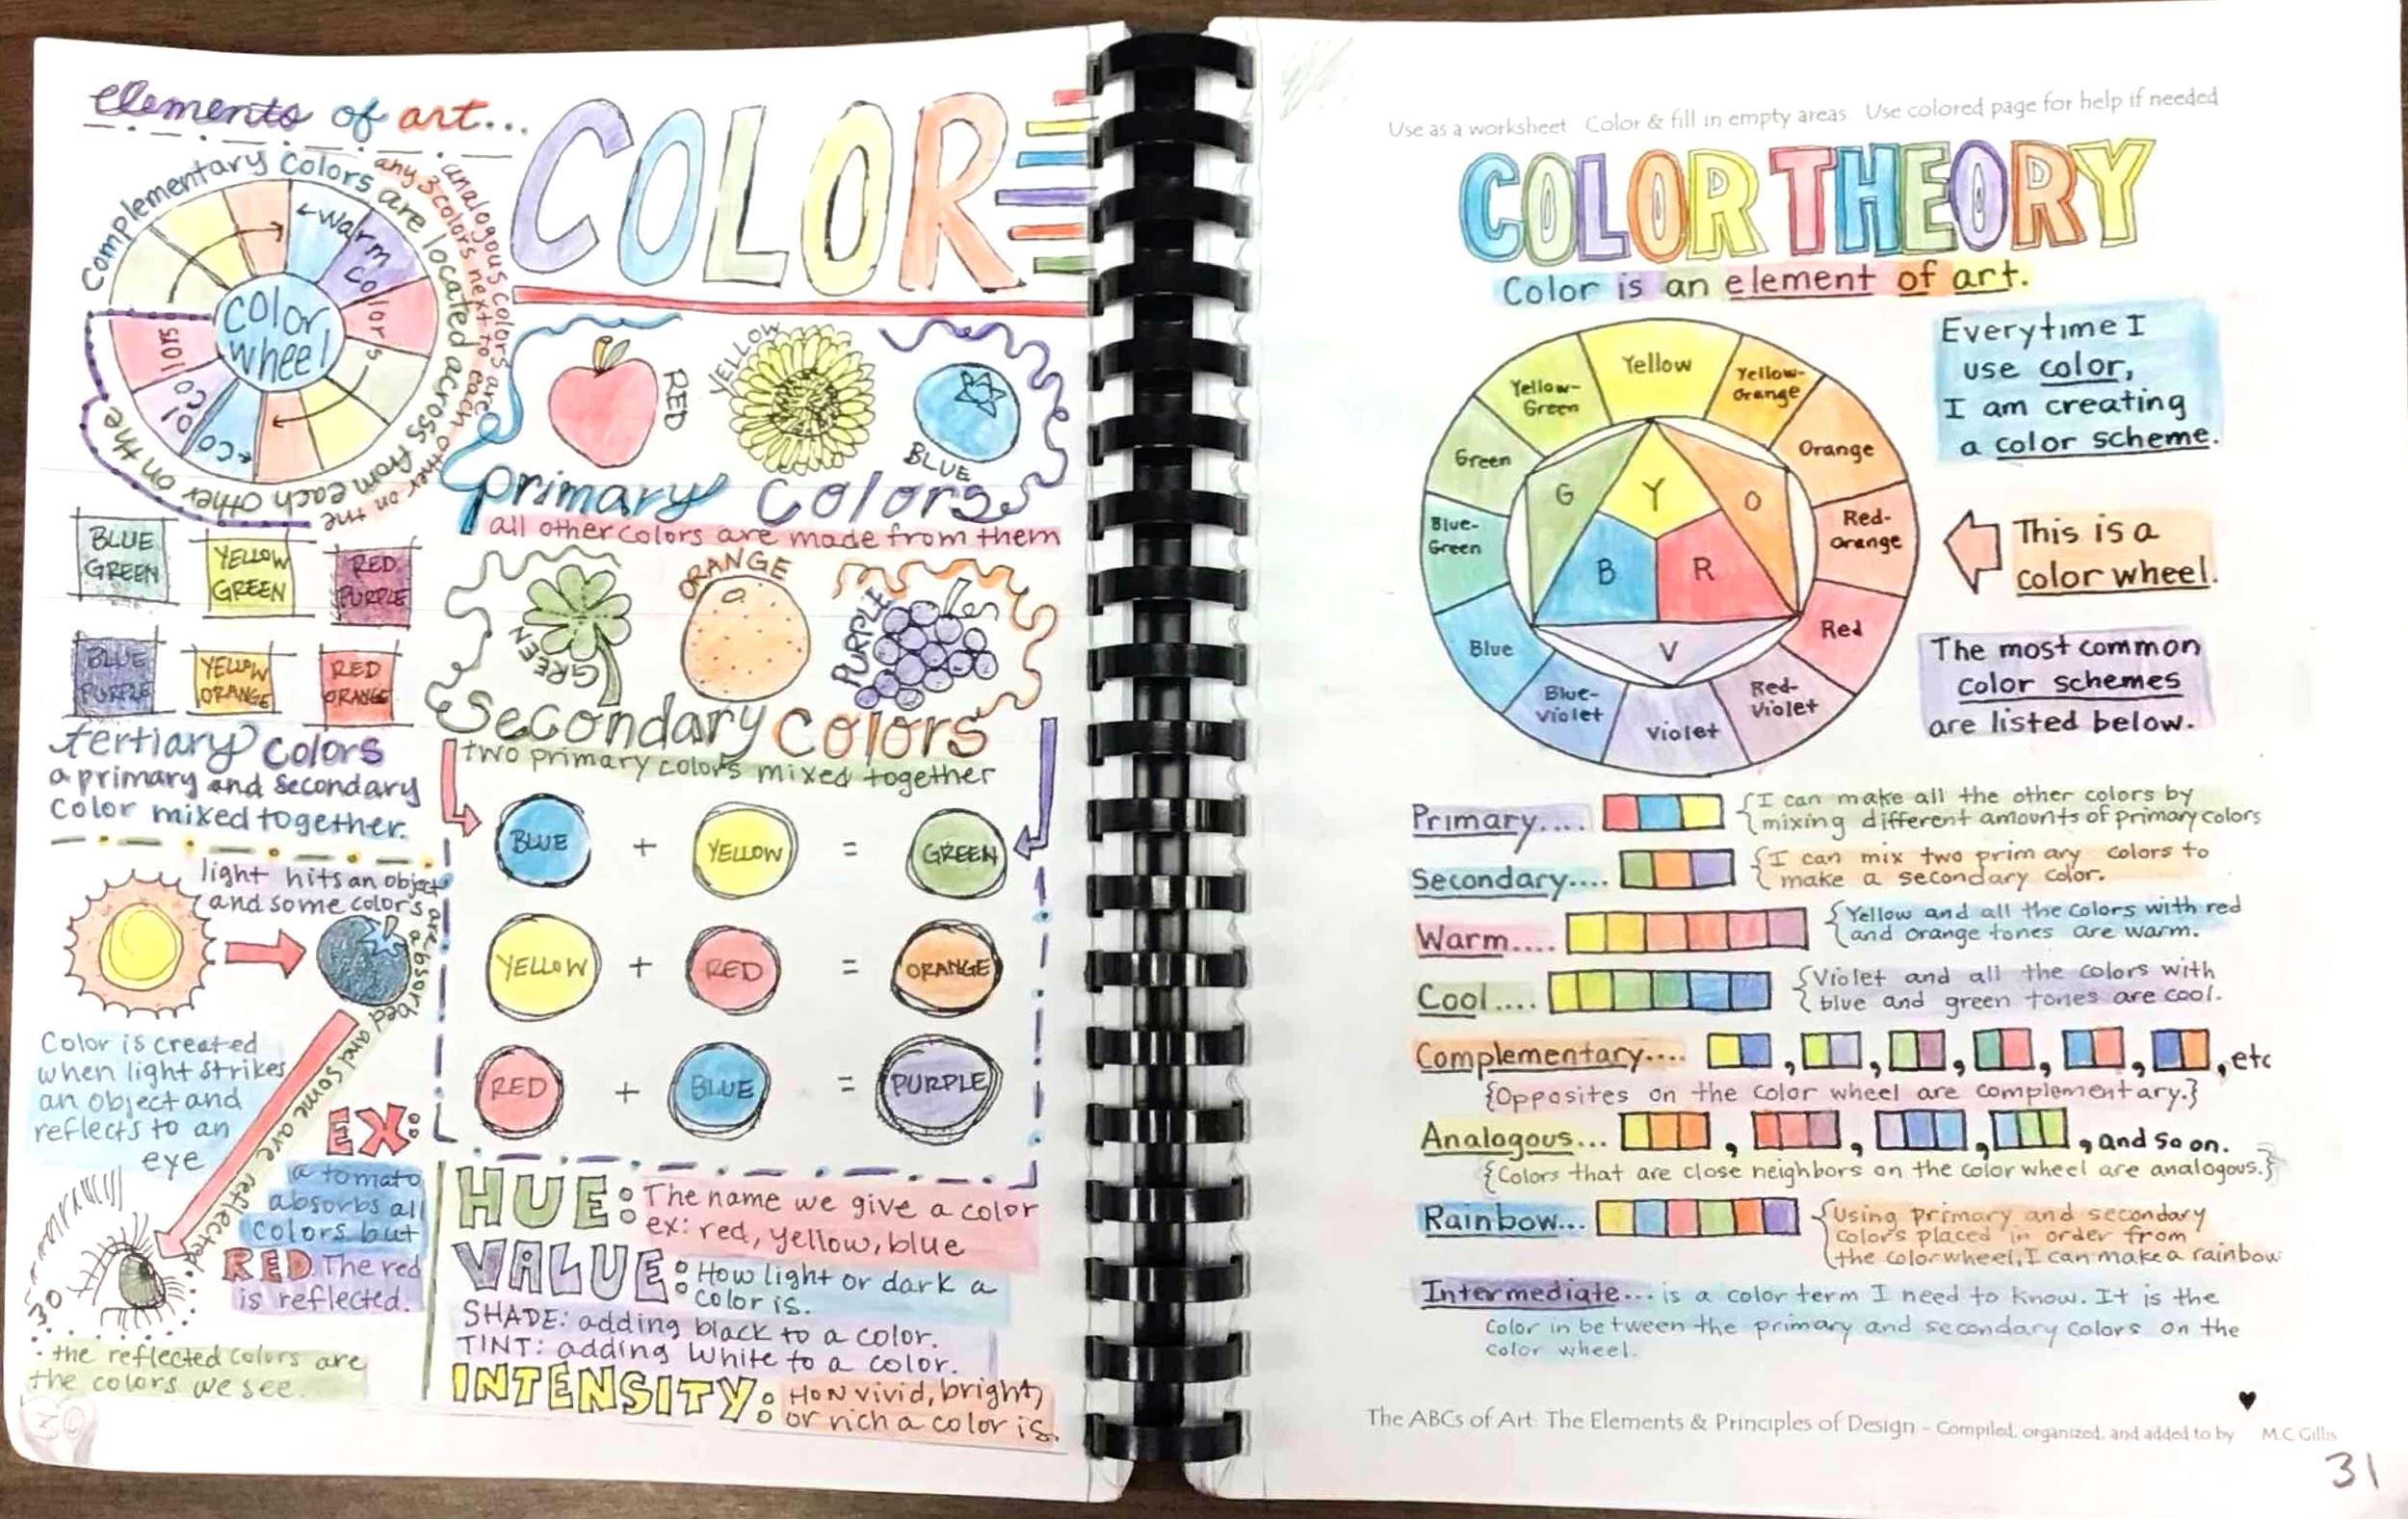 elements of art...
COLOR
Complementary Colors are located across from each other on the
analogous colors are
any 3 colors next to each other on the
←warm colors
color
wheel
cool colors
RED
YELLOW
BLUE
primary colors
all other colors are made from them
BLUE
GREEN
YELLOW
GREEN
RED
PURPLE
BLUE
PURPLE
YELLOW
ORANGE
RED
ORANGE
tertiary colors
a primary and secondary
color mixed together.
GREEN
ORANGE
PURPLE
Secondary colors
two primary colors mixed together
BLUE + YELLOW = GREEN
YELLOW + RED = ORANGE
RED + BLUE = PURPLE
light hits an object
and some colors are absorbed and some are reflected
Color is created
when light strikes
an object and
reflects to an
eye
EX:
a tomato
absorbs all
colors but
RED. The red
is reflected.
30
the reflected colors are
the colors we see.
30
HUE: The name we give a color
ex: red, yellow, blue
VALUE: How light or dark a
color is.
SHADE: adding black to a color.
TINT: adding white to a color.
INTENSITY: How vivid, bright,
or rich a color is.
Use as a worksheet Color & fill in empty areas. Use colored page for help if needed
COLOR THEORY
Color is an element of art.
Yellow
Yellow-
Orange
Orange
Red-
Orange
Red
Red-
Violet
Violet
Blue-
Violet
Blue
Blue-
Green
Green
Yellow-
Green
G Y O
B R
V
Everytime I
use color,
I am creating
a color scheme.
This is a
color wheel.
The most common
color schemes
are listed below.
Primary.... {I can make all the other colors by
mixing different amounts of primary colors
Secondary.... {I can mix two primary colors to
make a secondary color.
Warm.... {Yellow and all the colors with red
and orange tones are warm.
Cool.... {Violet and all the colors with
blue and green tones are cool.
Complementary.... , , , , , , etc
{Opposites on the color wheel are complementary.}
Analogous... , , , , and so on.
{Colors that are close neighbors on the color wheel are analogous.}
Rainbow... {Using primary and secondary
colors placed in order from
the color wheel, I can make a rainbow
Intermediate... is a color term I need to know. It is the
color in between the primary and secondary colors on the
color wheel.
The ABCs of Art: The Elements & Principles of Design - Compiled, organized, and added to by ♥ M.C.Gillis
31